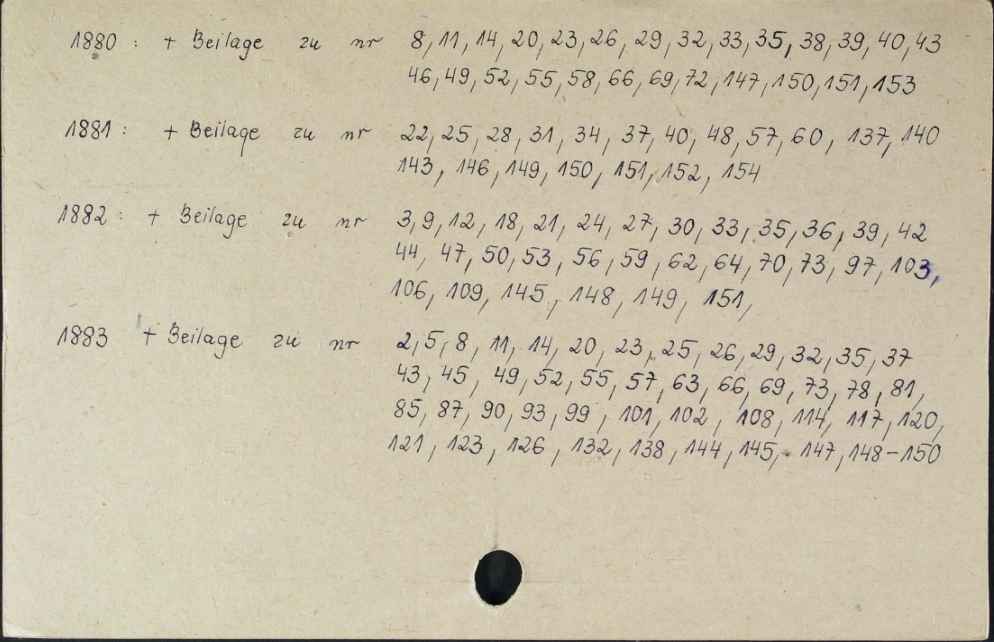 1880 : + Beilage zu nr 8, 11, 14, 20, 23, 26, 29, 32, 33, 35, 38, 39, 40, 43
46, 49, 52, 55, 58, 66, 69, 72, 147, 150, 151, 153
1881 : + Beilage zu nr 22, 25, 28, 31, 34, 37, 40, 48, 57, 60, 137, 140
143, 146, 149, 150, 151, 152, 154
1882 : + Beilage zu nr 3, 9, 12, 18, 21, 24, 27, 30, 33, 35, 36, 39, 42
44, 47, 50, 53, 56, 59, 62, 64, 70, 73, 97, 103,
106, 109, 145, 148, 149, 151,
1883 + Beilage zu nr 2, 5, 8, 11, 14, 20, 23, 25, 26, 29, 32, 35, 37
43, 45, 49, 52, 55, 57, 63, 66, 69, 73, 78, 81,
85, 87, 90, 93, 99, 101, 102, 108, 114, 117, 120,
121, 123, 126, 132, 138, 144, 145, 147, 148-150